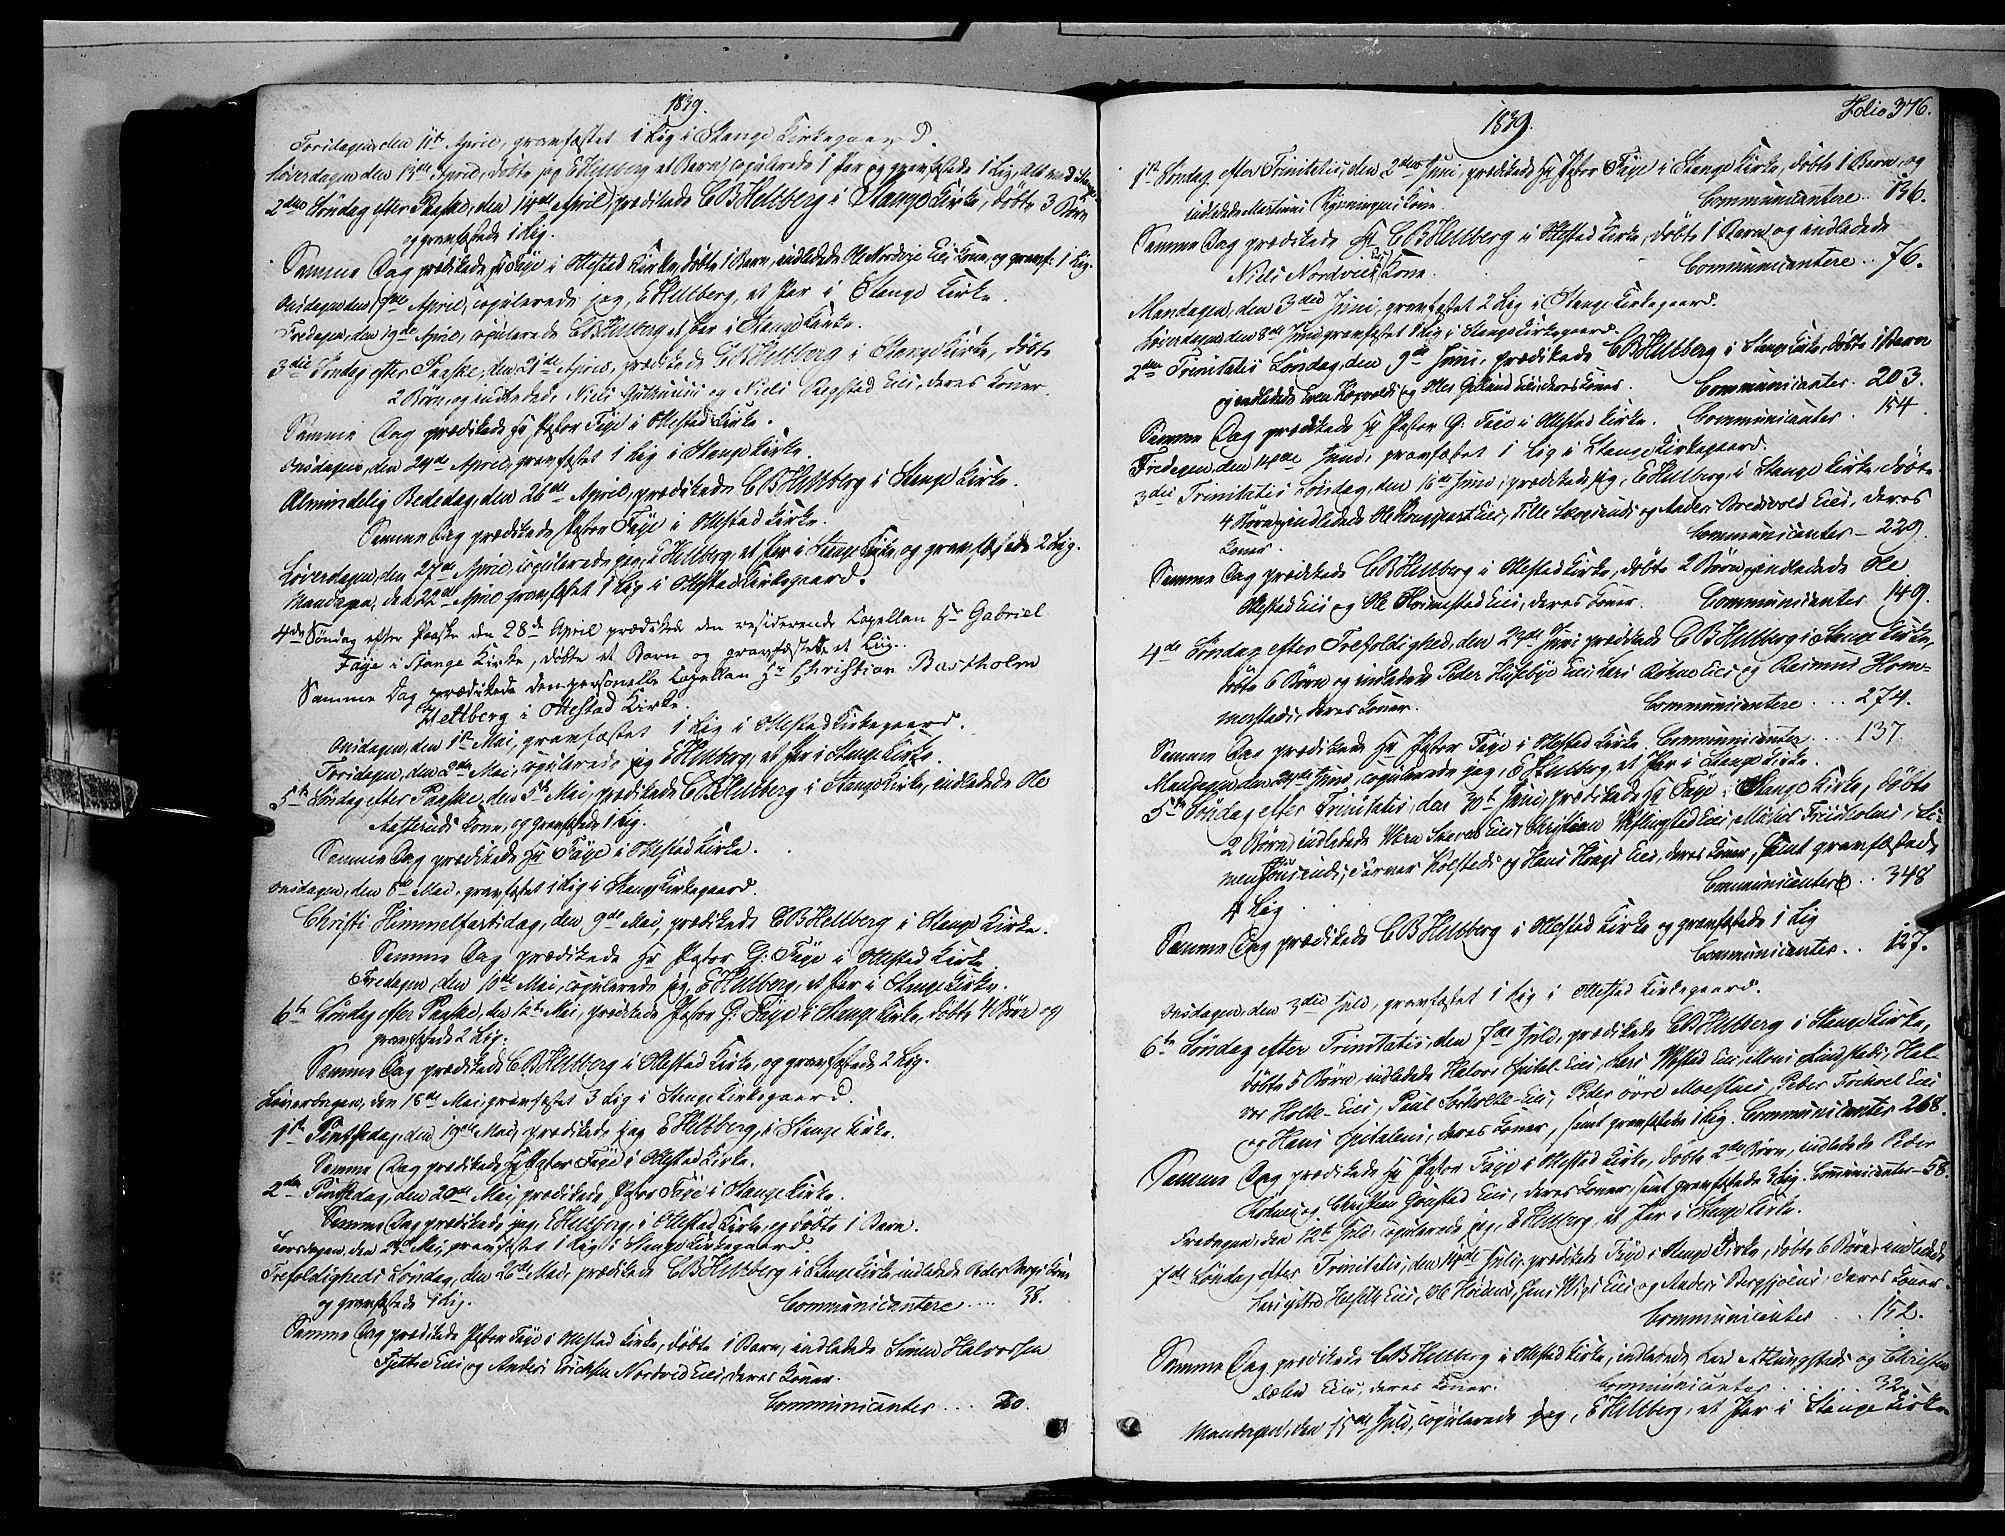 1839.
Torsdagen, den 11te April, gravfæstet 1 Lig i Stange Kirkegaard.
Løverdagen den 13de April, døbte jeg E Hellberg et Barn, copulerede 1 Par og gravfæstede 1 Lig, Alt ved Stange
2den Søndag efter Paaske, den 14de April, prædikede C B Hellberg i Stange Kirke, døbte 3 Børn
og gravfæstede 1 Lig.
Samme Dag prædikede Hr Faye i Ottestad Kirke, døbte 1 Barn, indledede Ole Nordvie Eies Kone, og gravf. 1 Lig.
Onsdagen den 17de April, copulerede jeg, E Hellberg, et Par i Stange Kirke.
Fredagen, den 19de April, copulerede C B Hellberg et Par i Stange Kirke.
3die Søndag efter Paaske, den 21de April, prædikede C B Hellberg i Stange Kirke, døbte
2 Børn, og indledede Niels Guthuuss og Niels Eies, deres Koner.
Samme Dag prædikede Hr Pastor Faye i Ottestad Kirke.
Onsdagen, den 24de April, gravfæstet 1 Lig i Stange Kirke.
Almindelig Bededag, den 26de April, prædikede C B Hellberg i Stange Kirke.
Samme Dag prædikede Pastor Faye i Ottestad Kirke.
Løverdagen, den 27de April, copulerede jeg, E Hellberg, et Par i Stange Kirke, og gravfæstede 2 Lig.
Mandagen, den 22de April gravfæstet 1 Lig i Ottestad Kirkegaard.
4de Søndag efter Paaske den 28de April prædikede den residerende Capellan Hr Gabriel
Faye i Stange Kirke, døbte et Barn og gravfæstede et Liig.
Samme Dag prædikede den personelle Capellan Hr Christian Bastholm
Hellberg i Ottestad Kirke.
Onsdagen, den 1ste Mai, gravfæstet 1 Lig i Ottestad Kirkegaard.
Torsdagen, den 2den Mai, copulerede jeg E Hellberg, et Par i Stange Kirke.
5te Søndag efter Paaske, den 5te Mai, prædikede C B Hellberg i Stange Kirke, indledede Ole
Aasteruds Kone, og gravfæstede 1 Lig.
Samme Dag prædikede Hr Faye i Ottestad Kirke.
Onsdagen, den 8de Mai, gravfæstet 1 Lig i Stange Kirkegaard.
Christi Himmelfartsdag, den 9de Mai, prædikede C B Hellberg i Stange Kirke.
Samme Dag prædikede Hr Pastor G. Faye i Ottestad Kirke.
Fredagen, den 10de Mai, copulerede jeg, E Hellberg, et Par i Stange Kirke.
6te Søndag efter Paaske, den 12te Mai, prædikede Pastor G. Faye i Stange Kirke, døbte 4 Børn og
gravfæstede 2 Lig.
Samme Dag prædikede C B Hellberg i Ottestad Kirke, og gravfæstede 2 Lig.
Løverdagen, den 18de Mai, gravfæstet 3 Lig i Stange Kirkegaard.
1ste Pintsedag, den 19de Mai, prædikede jeg E Hellberg, i Stange Kirke.
Samme Dag prædikede Hr Pastor Faye i Ottestad Kirke.
2den Pintsedag, den 20de Mai prædikede Pastor Faye i Stange Kirke.
Samme Dag prædikede jeg, E Hellberg, i Ottestad Kirke, og døbte 1 Barn.
Torsdagen, den 23de Mai, gravfæstet 1 Lig i Stange Kirkegaard.
Trefoldigheds Søndag, den 26de Mai, prædikede C B Hellberg i Stange Kirke, indledede Peder Bergs Kone
og gravfæstede 1 Lig. Communicantere .... 38.
Samme Dag prædikede Pastor Faye i Ottestad Kirke, døbte 1 Barn, indledede Simen Halvorsen
Tjette Eies og Anders Erichsen Nordvie Eies, deres Koner.
Communicanter ... 20.
1839.
Folio 376.
1ste Søndag efter Trinitatis, den 2den Juni, prædikede Hr Pastor Faye i Stange Kirke, døbte 1 Barn, og
indledede Martinus Kone. Communicantere .. 136.
Samme Dag prædikede Hr C B Hellberg i Ottestad Kirke, døbte 1 Barn og indledede
Niels Nordvies Eies Kone. Communicantere .. 76.
Mandagen, den 3die Juni, gravfæstet 2 Lig i Stange Kirkegaard.
Løverdagen, den 8de Juni gravfæstet 1 Lig i Stange Kirkegaard.
2den Trinitatis Søndag, den 9de Juni, prædikede C B Hellberg i Stange Kirke, døbte 1 Barn
og indledede Even og Ole Eies, deres Koner. Communicanter. 203.
Samme Dag prædikede Hr Pastor G: Faye i Ottestad Kirke. Communicanter . 154.
Fredagen, den 14de Juni, gravfæstet 1 Lig i Stange Kirkegaard.
3die Trinitatis Søndag, den 16de Juni, prædikede jeg, E Hellberg, i Stange Kirke, døbte
4 Børn og indledede Ole Eies, Tille og Anders Bredvold Eies, deres
Koner. Communicanter – 229.
Samme Dag prædikede C B Hellberg i Ottestad Kirke, døbte 2 Børn og indledede Ole
Ottestad Eies og Ole Hoimestad Eies, deres Koner. Communicanter 149.
4de Søndag efter Trefoldighed, den 23de Juni prædikede C B Hellberg i Stange Kirke,
døbte 6 Børn og indledede Peder Huseby Eies, Lars Rokne Eies og Rasmus Hom-
merstads, deres Koner. Communicantere .... 274.
Samme Dag prædikede Hr Pastor Faye i Ottestad Kirke. Communicanter .... 137
Mandagen, den 24de Juni, copulerede jeg, E Hellberg, et Par i Stange Kirke.
5te Søndag efter Trinitatis, den 30te Juni prædikede Hr Faye i Stange Kirke, døbte
2 Børn, indledede Eies, Christian Eies, Mikkel Friisholms, Si-
men og Hans Hougs Eies, deres Koner, samt gravfæstede
4 Lig. Communicantere .. 348
Samme Dag prædikede C B Hellberg i Ottestad Kirke og gravfæstede 1 Lig
Communicanter .. 127.
Onsdagen, den 3die Juli, gravfæstet 1 Lig i Ottestad Kirkegaard.
6te Søndag efter Trinitatis, den 7de Juli, prædikede C B Hellberg i Stange Kirke,
døbte 5 Børn, indledede Halvor Spital-Eies, Lars Eies, Mons Lindstads, Hal-
vor Holte-Eies, Paul Sorholte-Eies, Peder øvre Moestues, Peder Eies
og Hans Spitalens, deres Koner, samt gravfæstede 1 Lig. Communicanter 268.
Samme Dag prædikede Hr Pastor Faye i Ottestad Kirke, døbte 2de Børn, indledede Peder
og Christen Eies, deres Koner, samt gravfæstede 3 Lig. Communicanter – 58.
Fredagen, den 12te Juli, copulerede jeg, E Hellberg, et Par i Stange Kirke.
7de Søndag efter Trinitatis, den 14de Juli, prædikede Faye i Stange Kirke, døbte 6 Børn, indledede
Lars yttre Eies, Ole Jens Eies og Anders deres Koner.
Communicanter .. 152.
Samme Dag prædikede C B Hellberg i Ottestad Kirke, indledede Lars og Christen
Eies, deres Koner. Communicanter .... 32.
Mandagen, den 15de Juli, copulerede jeg, E Hellberg, et Par i Stange Kirke